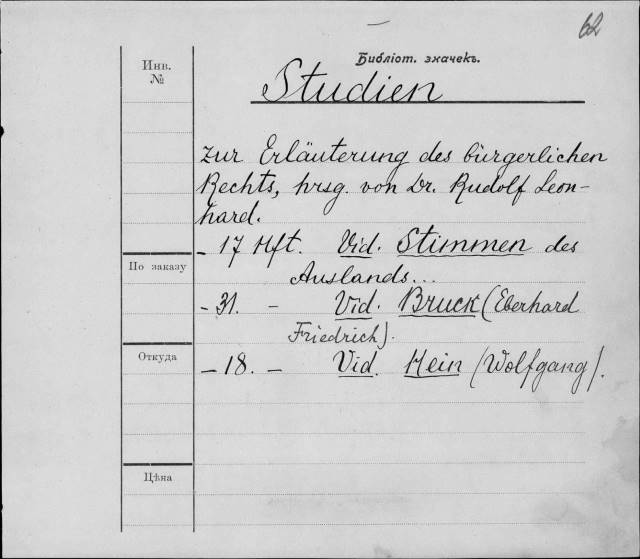 62
Инв.
№
Библіот. значекъ.
Studien
zur Erläuterung des bürgerlichen
Rechts, hrsg. von Dr. Rudolf Leon-
hard.
- 17 Hft. Vid. Stimmen des
Auslands...
По заказу
- 31. - Vid. Bruck (Eberhard
Friedrich).
Откуда
- 18. - Vid. Hein (Wolfgang).
Цѣна